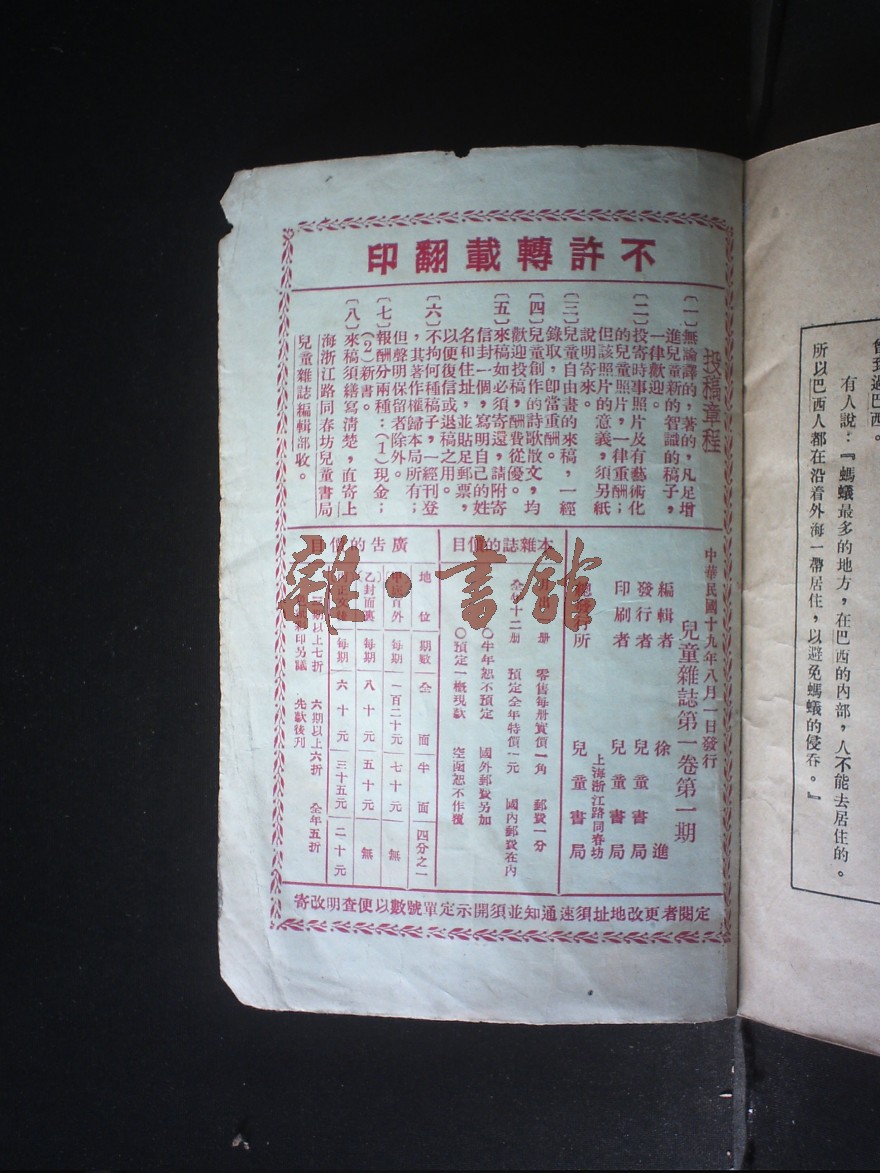 曾到過巴西。
有人說：『螞蟻最多的地方，在巴西的內部，人不能去居住的。
所以巴西人都在沿着外海一帶居住，以避免螞蟻的侵吞。』
不許轉載翻印
投稿章程
〔一〕無論譯的，著的，凡足增
進兒童新的智識的稿子，
一律歡迎。
〔二〕投寄時事照片及有藝術化
的兒童照片，一律重酬；
但該照片的意義，須另紙
說明寄來。
〔三〕兒童自由畫的來稿，一經
錄取，卽當重酬。
〔四〕兒童創作的詩歌散文，均
歡迎投稿，酬費從優。
〔五〕來稿如必須寄還，請附寄
信封一個，寫明自己的姓
名和住址，並貼足郵票，
以便復信或退稿之用。
〔六〕不拘何種稿子，一經刊登
，其著作權歸本局所有；
但聲明保留者除外。
〔七〕報酬分兩種：(1)現金；
(2)新書。
〔八〕來稿須繕寫清楚，直寄上
海浙江路同春坊兒童書局
兒童雜誌編輯部收。
中華民國十九年八月一日發行
兒童雜誌第一卷第一期
編輯者 徐進
發行者 兒童書局
印刷者 兒童書局
上海浙江路同春坊
所 兒童書局
本雜誌的價目
冊 零售每册實價一角 郵費一分
全年十二册 預定全年特價一元 國內郵費在內
○半年恕不預定 國外郵費另加
○預定一概現款 空函恕不作復
廣告的價目
地位 期數 全面 半面 四分之一
外 每期 一百二十元 七十元 無
乙 封面裏 每期 八十元 五十元 無
正文 每期 六十元 三十五元 二十元
期以上七折 六期以上六折 全年五折
印另議 先款後刊
定閱者更改地址須速通知並須開示定單號數以便查明改寄
雜·書館